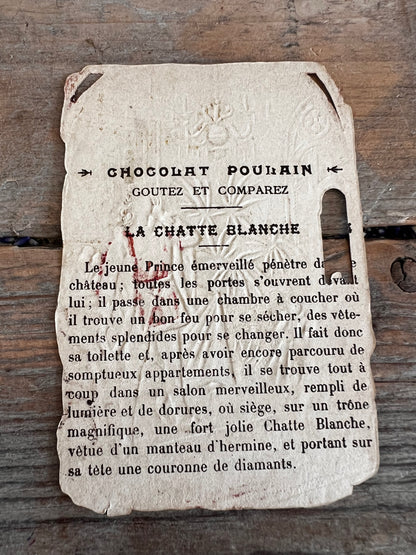 CHOCOLAT POULAIN
GOUTEZ ET COMPAREZ
LA CHATTE BLANCHE
Le jeune Prince émerveillé pénètre le
château; toutes les portes s'ouvrent devant
lui; il passe dans une chambre à coucher où
il trouve un bon feu pour se sécher, des vête-
ments splendides pour se changer. Il fait donc
sa toilette et, après avoir encore parcouru de
somptueux appartements, il se trouve tout à
coup dans un salon merveilleux, rempli de
lumière et de dorures, où siège, sur un trône
magnifique, une fort jolie Chatte Blanche,
vêtue d'un manteau d'hermine, et portant sur
sa tête une couronne de diamants.